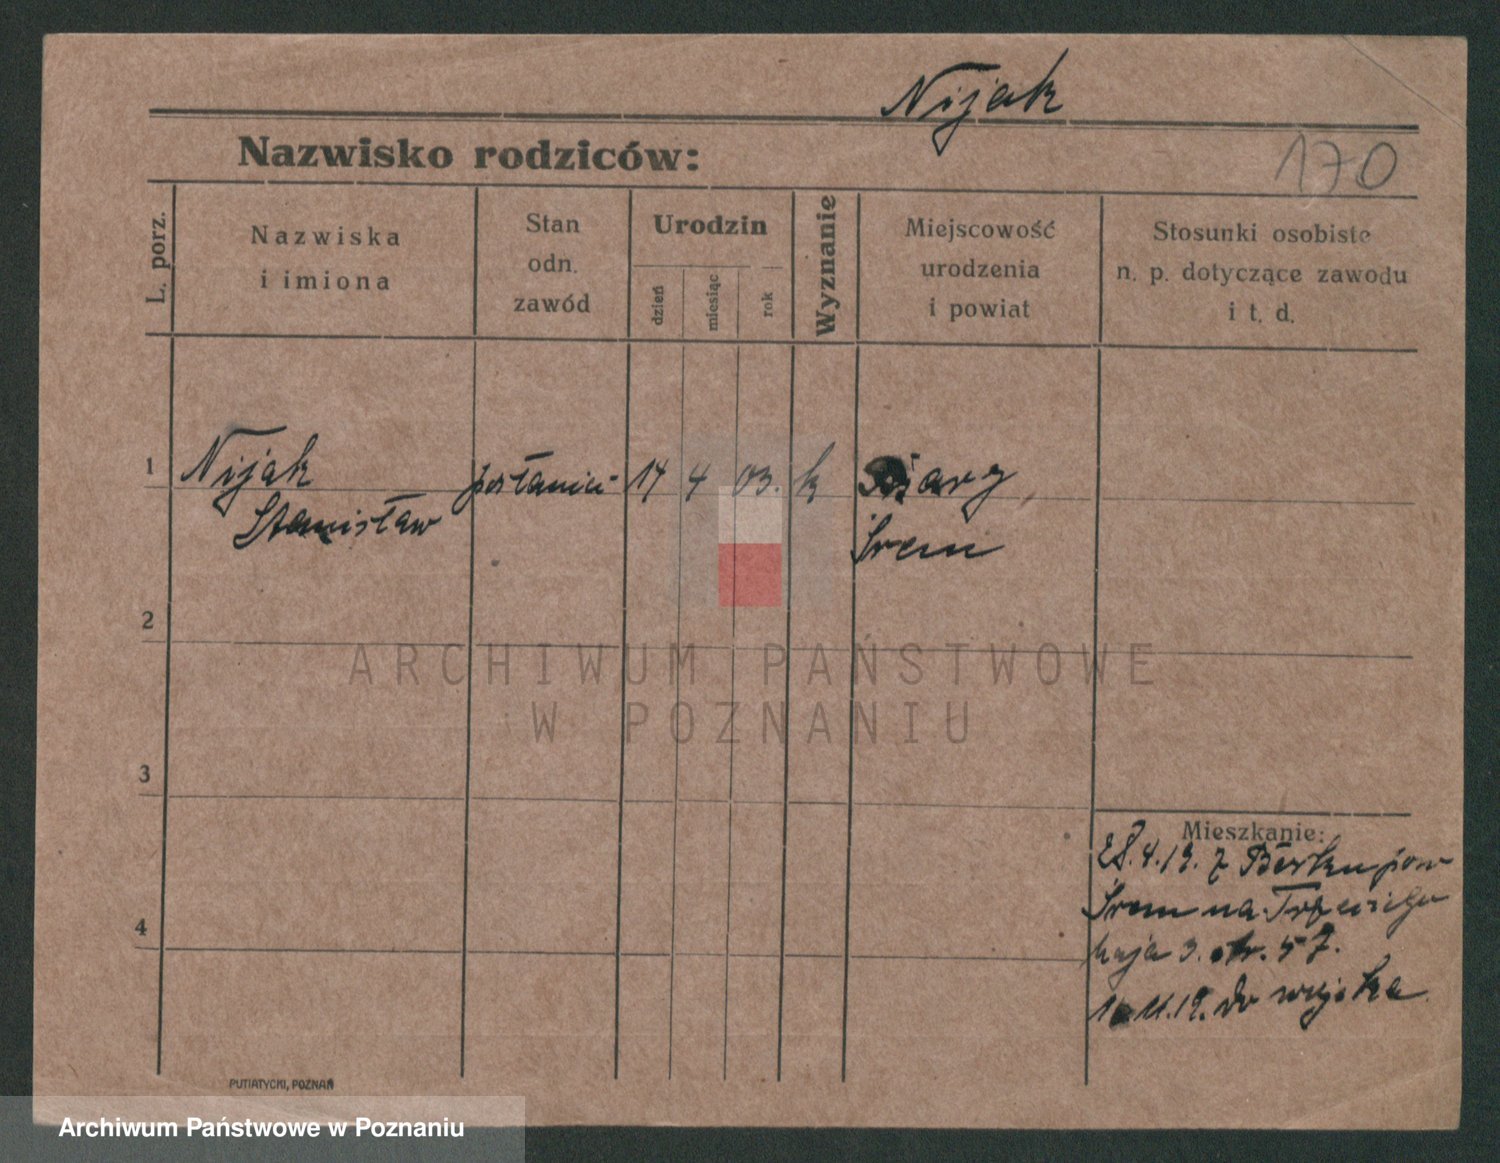 Nijak
Nazwisko rodziców:
170
L. porz.
Nazwiska
i imiona
Stan
odn.
zawód
Urodzin
dzień
miesiąc
rok
Wyznanie
Miejscowość
urodzenia
i powiat
Stosunki osobiste
n. p. dotyczące zawodu
i t. d.
1
Nijak
Stanisław
14
4
03.
k
Śrem
2
3
4
Mieszkanie:
28.4.19. z
Śrem na Trzeciego
Maja 3. str. 57.
11.19. do wojska
ARCHIWUM PAŃSTWOWE
W POZNANIU
PUTIATYCKI, POZNAŃ
Archiwum Państwowe w Poznaniu